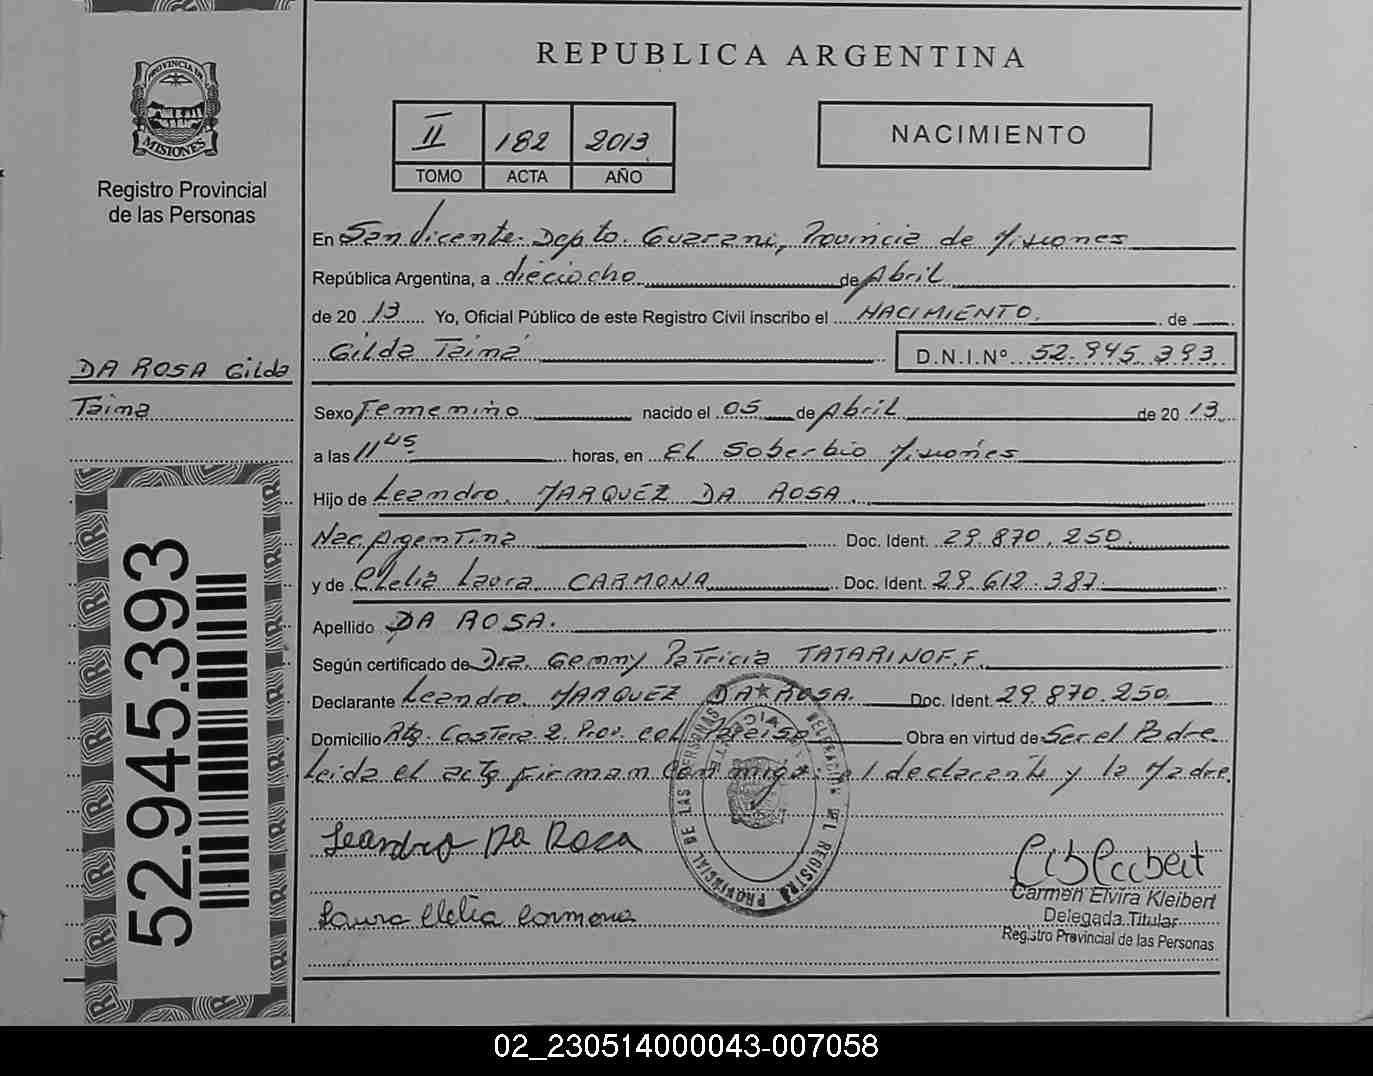 REPUBLICA ARGENTINA
PROVINCIA DE
MISIONES
Registro Provincial
de las Personas
II 182 2013
TOMO ACTA AÑO
NACIMIENTO
En San Vicente. Depto. Guarani, Provincia de Misiones
República Argentina, a dieciocho de Abril
de 20 13 Yo, Oficial Público de este Registro Civil inscribo el NACIMIENTO. de
Gilda Tainá D.N.I.Nº 52.945.393
DA ROSA Gilda
Taina
Sexo Femenino nacido el 05 de Abril de 20 13
a las 11 45 horas, en El Soberbio Misiones
Hijo de Leandro. MARQUEZ DA ROSA.
Nac. Argentina Doc. Ident. 29.870.250.
y de Clelia Laura CARMONA Doc. Ident. 29.612.387
Apellido DA ROSA.
Según certificado de Dra. Gemmy Patricia TATARINOF.F.
Declarante Leandro. MARQUEZ DA ROSA. Doc. Ident. 29.870.250
Domicilio Rta. Costera 2. Prov. col. Paraiso Obra en virtud de Ser el Padre
Leida el acta firman conmigo: el declarante y la Madre
Leandro Da Rosa
Laura Clelia Carmona
Carmen Elvira Kleibert
Delegada Titular
Registro Provincial de las Personas
52.945.393
02_230514000043-007058